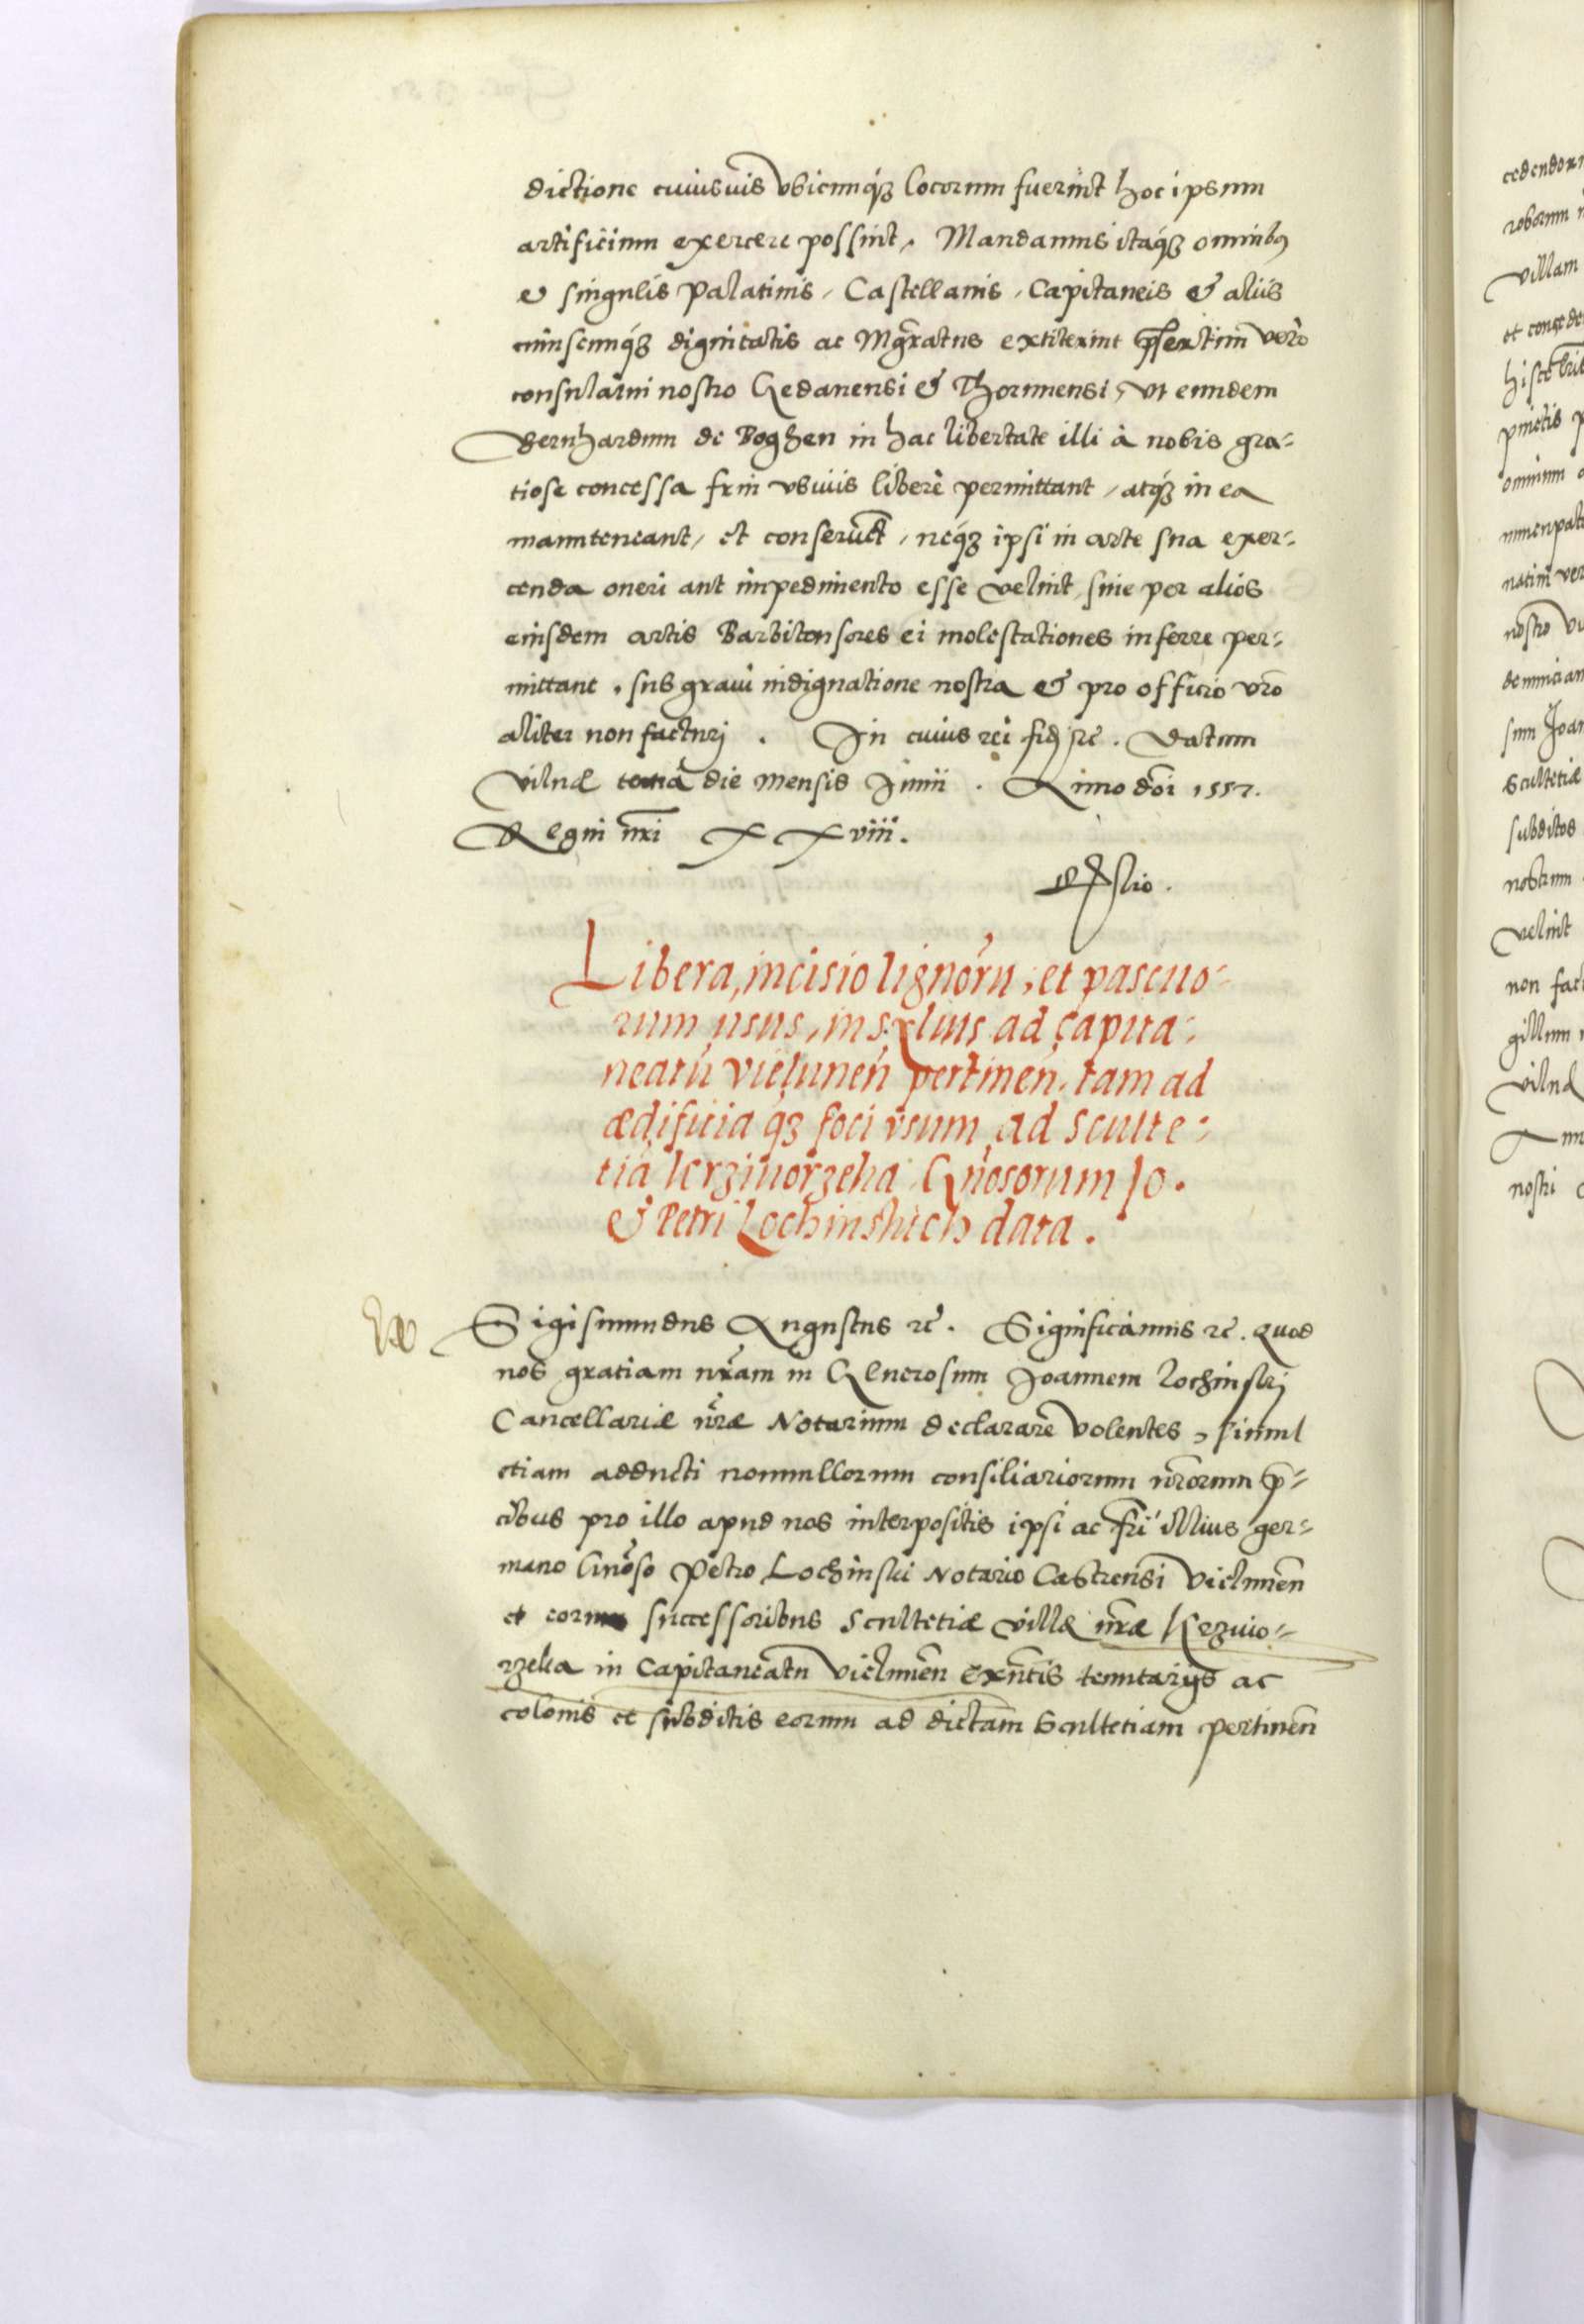 dictione cuiusuis vbicunq; locorum fuerint hoc ipsum
artificium exercere possint, Mandamus itaq; omnibus
et singulis Palatinis, Castellanis, Capitaneis & aliis
cuiuscunq; dignitatis ac Mgratus extiterint presertim vero
consulatui nostro Gedanensi & Thorunensi, vt eundem
Bernhardum de Boghen in hac libertate illi à nobis gra-
tiose concessa frui vbiuis liberè permittant, atq; in ea
manuteneant, et conseruet, neq; ipsi in arte sua exer-
cenda oneri aut impedimento esse velint, siue per alios
eiusdem artis Barbitonsores ei molestationes inferre per-
mittant, sub graui indignatione nostra & pro officio vro
aliter non facturj. In cuius rei fid rc. Datum
Vilnæ tertia die mensis Junii. Anno doi 1557.
Regni nri XXviii.
Libera, incisio lignoru, et pascuo-
rum usus, in syluis ad capita-
neatu vielunen pertinen. tam ad
ædificia q; foci vsum ad Sculte-
tia Krziuorzeka Gnosorum Jo.
& Petri Lochinskich data.
Sigismundus Augustus rc. Significamus rc. Quod
nos gratiam nram in Generosum Joannem Lochinskj
Cancellariæ nræ Notarium declarare volentes, simul
etiam adducti nonnullorum consiliariorum nrorum p-
cibus pro illo apud nos interpositis ipsi ac fri illius ger-
mano Gnoso Petro Lochinski Notario Castrensi Vielunen
et eorum successoribus Scultetiæ villæ nræ Krziuo-
rzeka in Capitaneatu Vielunen exntis tenutarijs ac
colonis et subditis eorum ad dictam Scultetiam pertinen